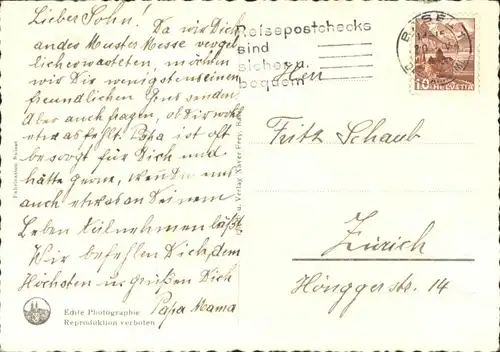 Lieber Sohn! Da wir Dich
an der Muster Messe vergeb-
lich erwarteten, möchten
wir Dir wenigstens einen
freundlichen Gruss senden.
Aber auch fragen, ob Dir wohl
etwas fehlt. Papa ist oft
besorgt für Dich und
hätte gerne, wenn Du uns
auch etwas an Deinem
Leben teilnehmen läßt.
Wir befehlen Dich, dem
Höchsten u. grüßen Dich
Papa Mama
Echte Photographie
Reproduktion verboten
Fabrication Suisse
u. Verlag Xaver Frey,
Reisepostchecks
sind
sicher u.
bequem
BASEL 1
10 HELVETIA
Herr
Fritz Schaub
Zürich
Hönggerstr. 14